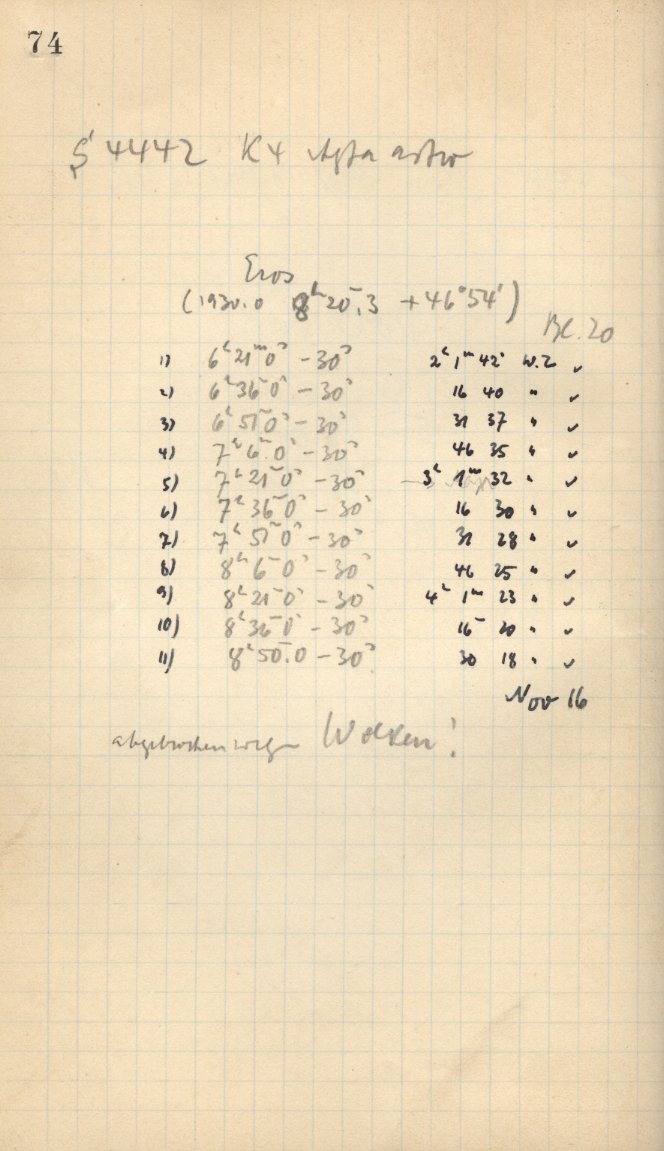 74
S 4442 K4 Agfa astro
Eros
(1930.0 8ʰ 20ᵐ.3 +46°54')
Bl. 20
1) 6ʰ 21ᵐ 0ˢ – 30ˢ 2ʰ 1ᵐ 42ˢ W.Z ✓
2) 6ʰ 36ᵐ 0ˢ – 30ˢ 16 40 " ✓
3) 6ʰ 51ᵐ 0ˢ – 30ˢ 31 37 " ✓
4) 7ʰ 6ᵐ 0ˢ – 30ˢ 46 35 " ✓
5) 7ʰ 21ᵐ 0ˢ – 30ˢ 3ʰ 1ᵐ 32 " ✓
6) 7ʰ 36ᵐ 0ˢ – 30ˢ 16 30 " ✓
7) 7ʰ 51ᵐ 0ˢ – 30ˢ 31 28 " ✓
8) 8ʰ 6ᵐ 0ˢ – 30ˢ 46 25 " ✓
9) 8ʰ 21ᵐ 0ˢ – 30ˢ 4ʰ 1ᵐ 23 " ✓
10) 8ʰ 36ᵐ 0ˢ – 30ˢ 16 20 " ✓
11) 8ʰ 50ᵐ.0 – 30ˢ 30 18 " ✓
Nov 16
abgebrochen wegen Wolken!